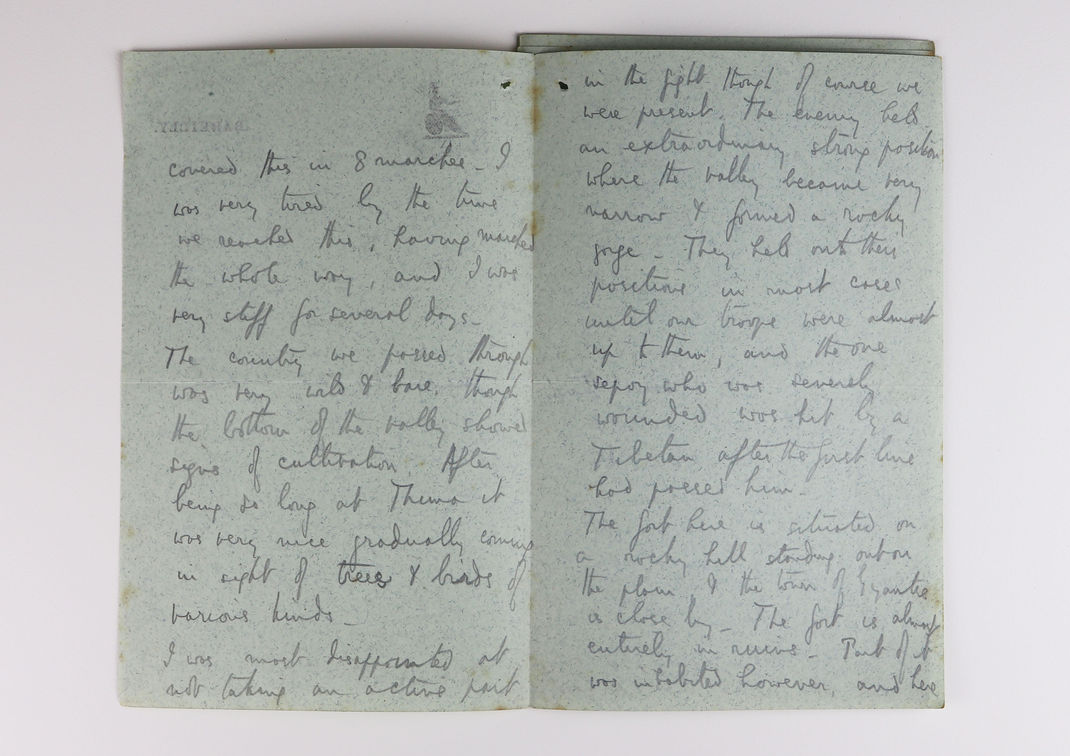 BAREILLY.
covered this in 8 marches _ I
was very tired by the time
we reached this, having marched
the whole way, and I was
very stiff for several days _
The country we passed through
was very wild & bare, though
the bottom of the valley showed
signs of cultivation. After
being so long at Thuna it
was very nice gradually coming
in sight of trees & birds of
various kinds _
I was most disappointed at
not taking an active part
in the fight though of course we
were present. The enemy held
an extraordinary strong position
where the valley became very
narrow & formed a rocky
gorge _ They held onto their
positions in most cases
until our troops were almost
up to them, and the one
sepoy who was severely
wounded was hit by a
Tibetan after the first line
had passed him _
The fort here is situated on
a rocky hill standing out on
the plain, & the town of Gyantse
is close by _ The fort is almost
entirely in ruins _ Part of it
was inhabited however, and here